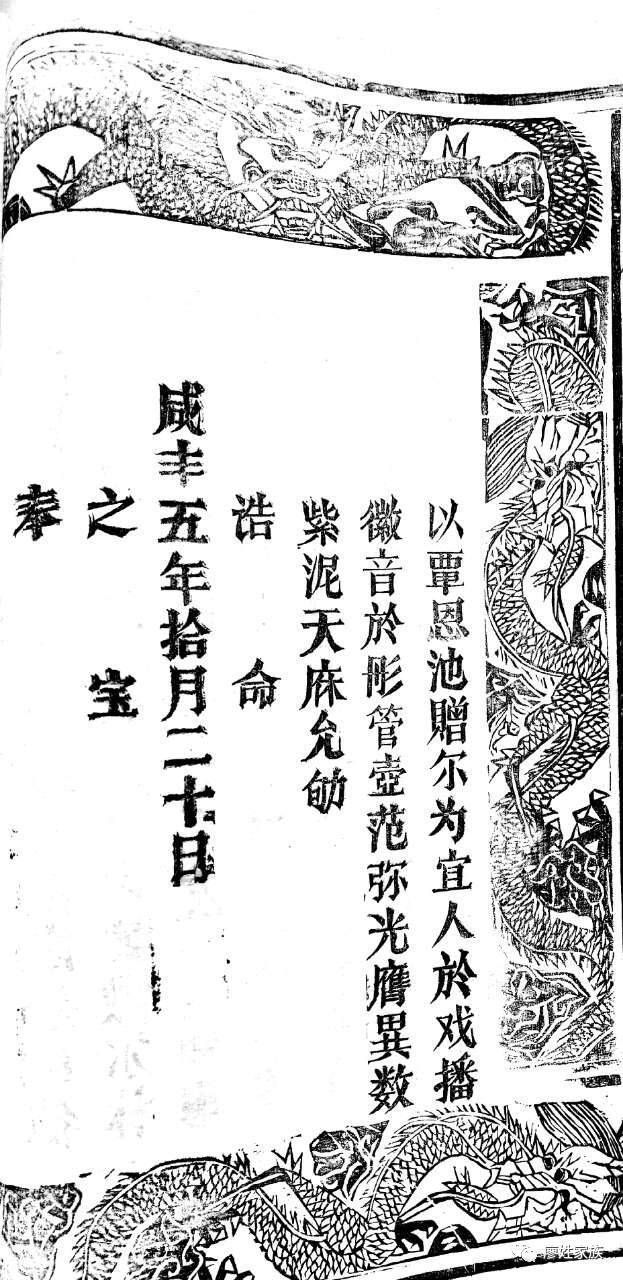 以覃恩池贈尔为宜人於戏播
徽音於彤管壼范弥光膺異数
紫泥天庥允劭
诰命
咸丰五年拾月二十日
之宝
奉
廖姓家族